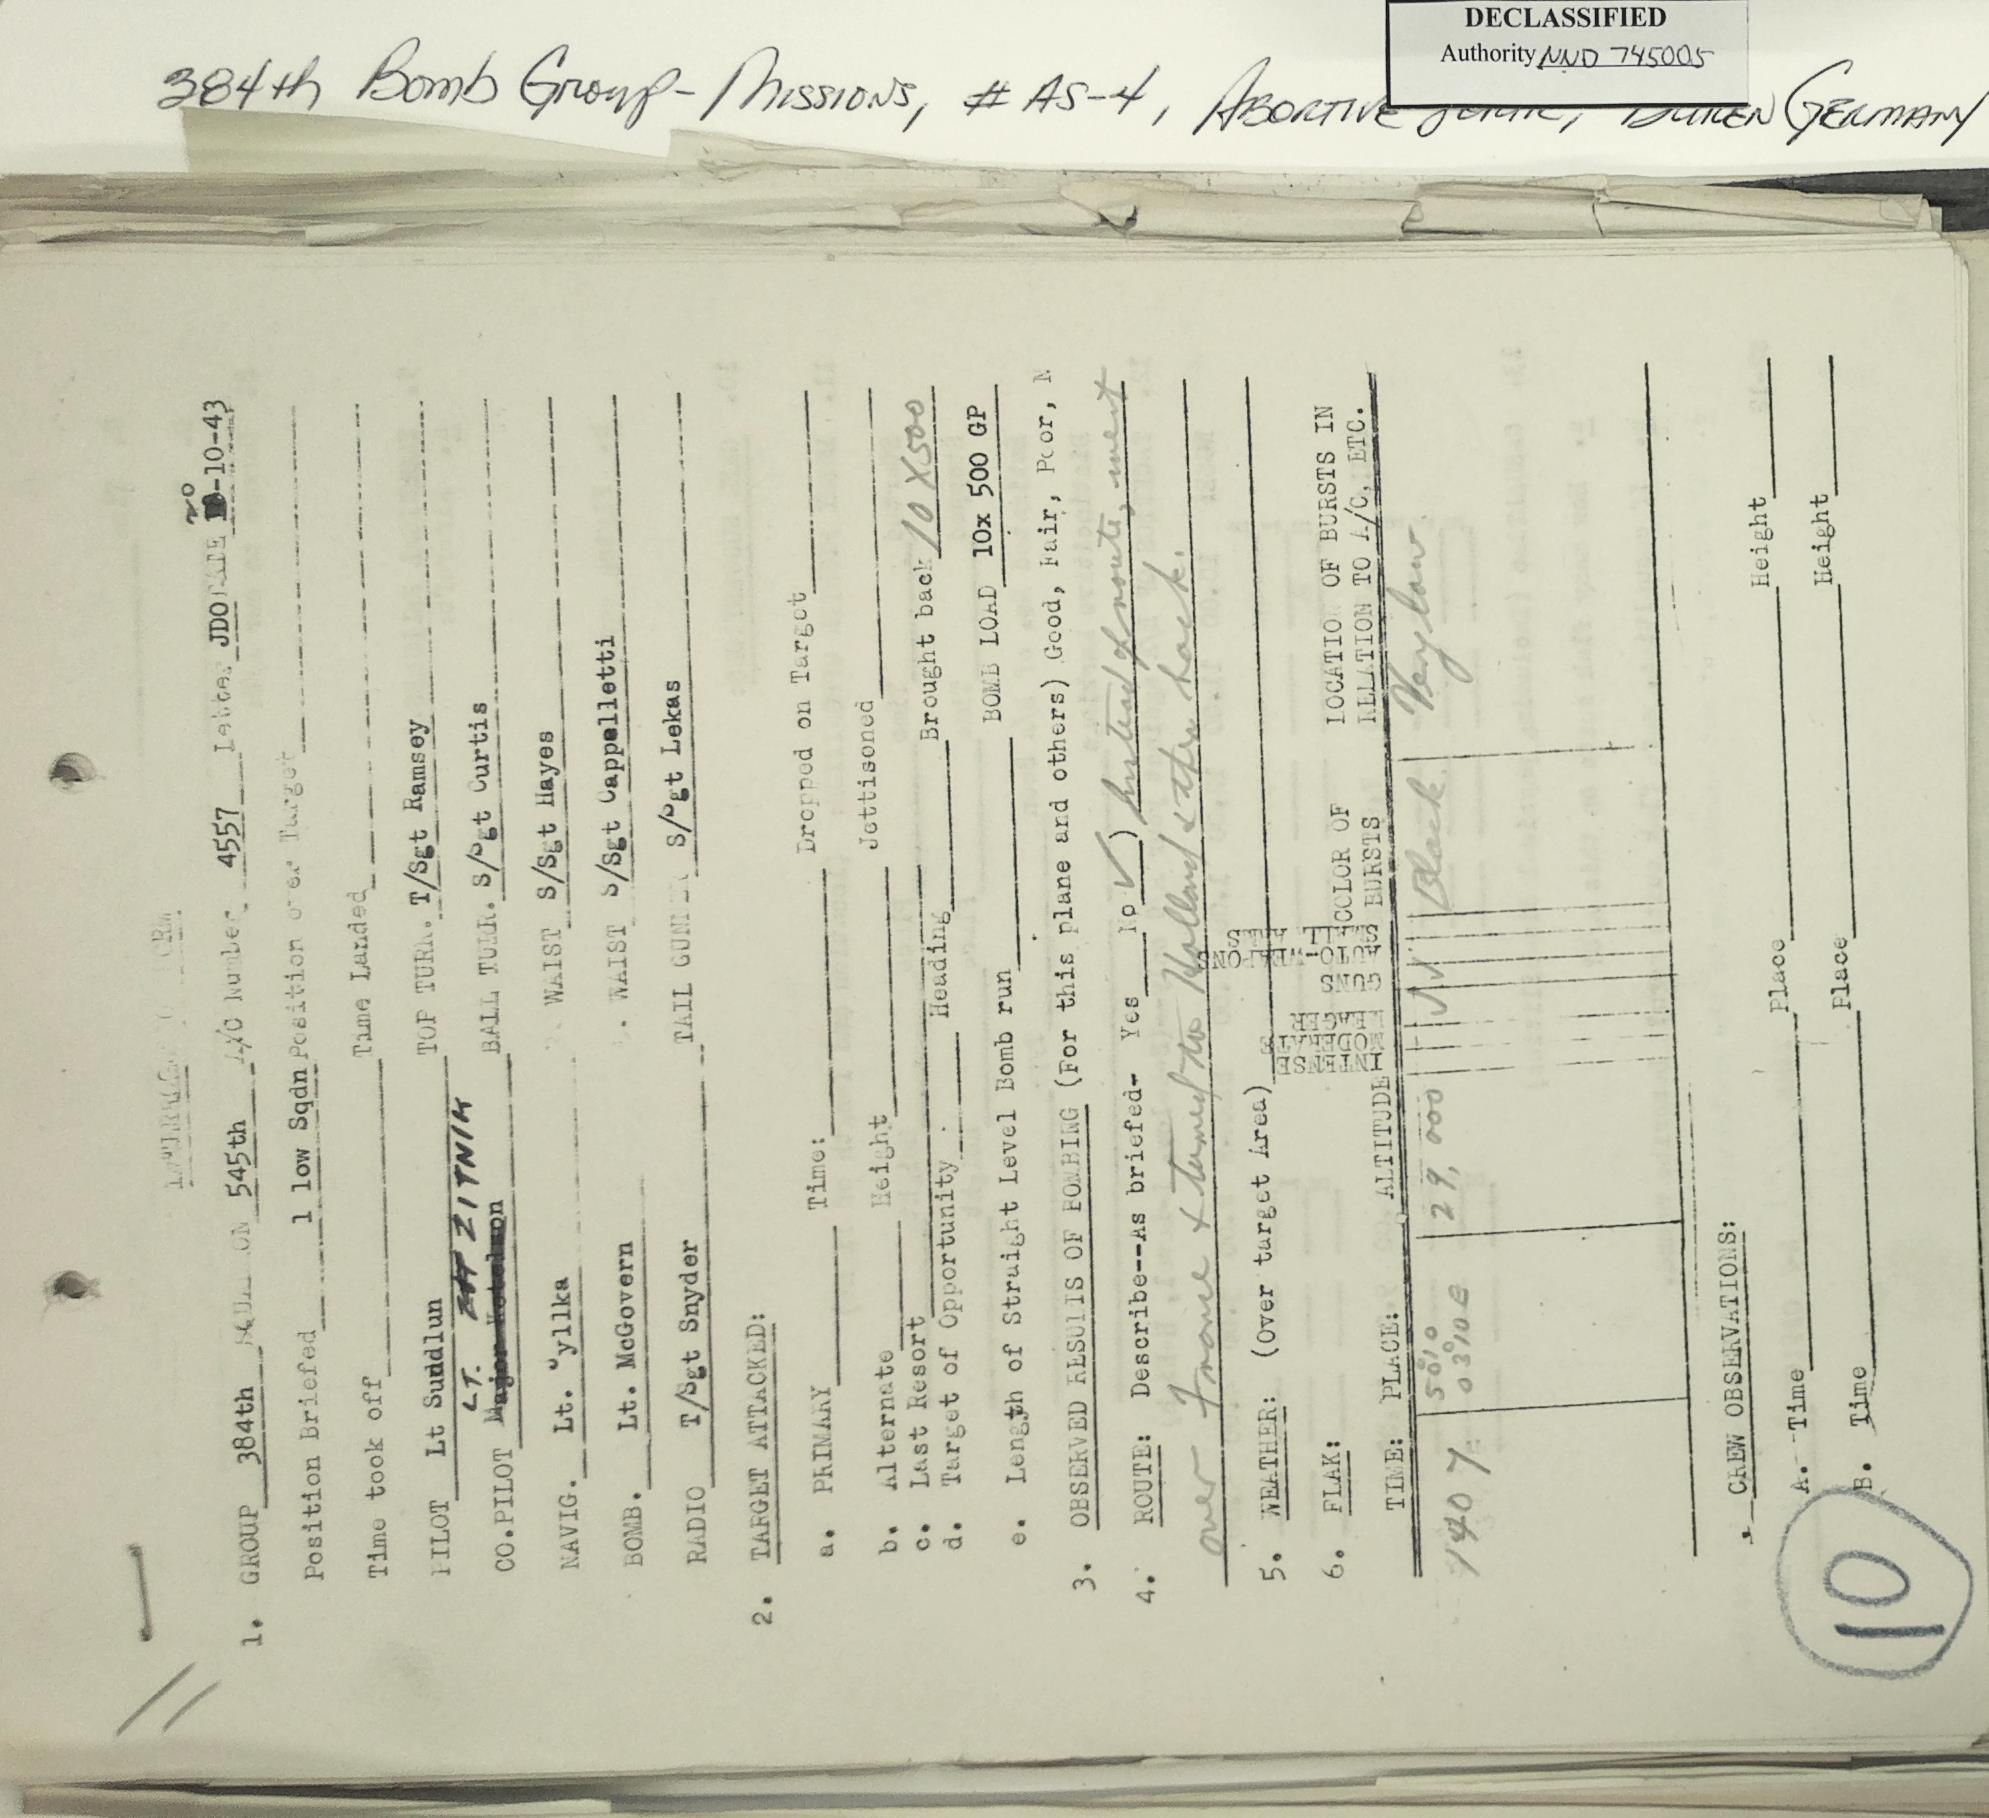 DECLASSIFIED
Authority NND 745005
384th Bomb Group - Missions, # AS-4, ABORTIVE GERMANY
INTERROGATION FORM
1. GROUP 384th SQUADRON 545th A/C Number 4557 Letter JDO DATE 20-10-43
Position Briefed 1 low Sqdn Position over Target
Time took off Time Landed
PILOT Lt Suddlun TOP TURR. T/Sgt Ramsey
LT. ZITNIK
CO.PILOT Major BALL TURR. S/Sgt Curtis
NAVIG. Lt. yllka WAIST S/Sgt Hayes
BOMB. Lt. McGovern WAIST S/Sgt Cappelletti
RADIO T/Sgt Snyder TAIL GUNNER S/Sgt Lekas
2. TARGET ATTACKED:
a. PRIMARY Time: Dropped on Target
b. Alternate Height Jettisoned
c. Last Resort
d. Target of Opportunity Heading Brought back 10 X 500
e. Length of Straight Level Bomb run BOMB LOAD 10x 500 GP
3. OBSERVED RESULTS OF BOMBING (For this plane and others) Good, Fair, Poor, N
4. ROUTE: Describe--As briefed- Yes No ✓) Instead of route, went
over France & turned to Holland & then back.
5. WEATHER: (Over target Area)
6. FLAK:
TIME: PLACE: ALTITUDE INTENSE MODERATE MEAGER GUNS AUTO-WEAPONS COLOR OF BURSTS LOCATION OF BURSTS IN RELATION TO A/C, ETC.
1407 5010 0310E 29,000 ✓ ✓ Black Very low.
CREW OBSERVATIONS:
A. Time Place Height
B. Time Place Height
10